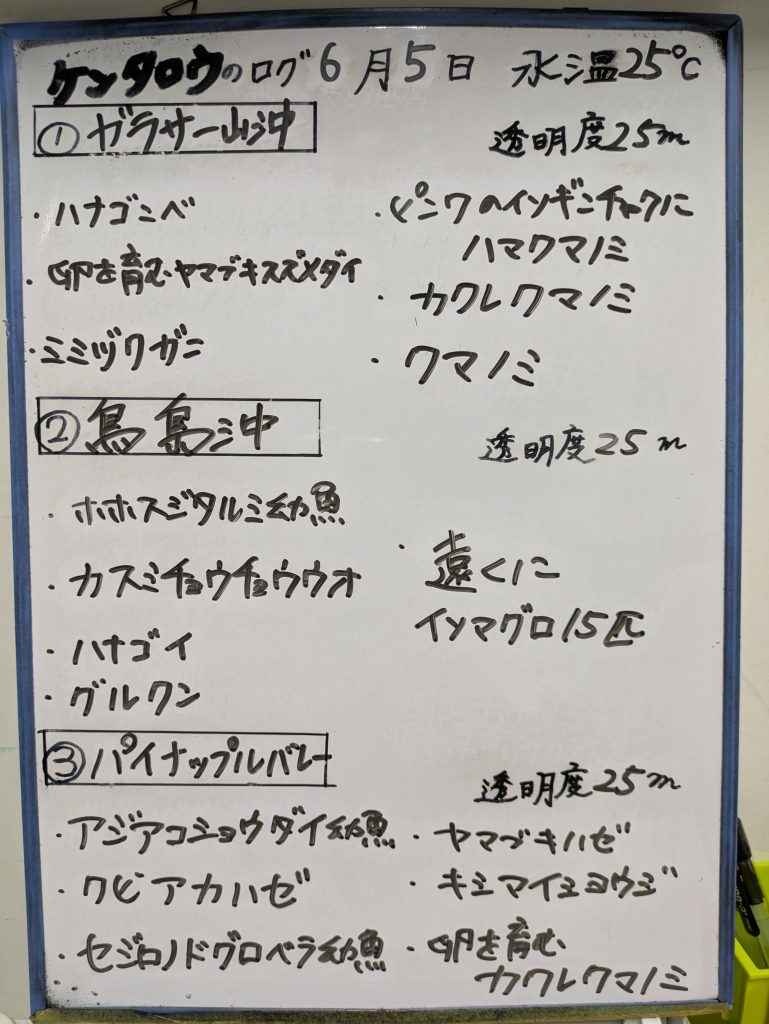 ケンタロウのログ 6月5日 水温25℃
①ガラサー山沖
透明度25m
・ハナゴンベ
・卵を育むヤマブキスズメダイ
・ミミヅクガニ
・ピンクのイソギンチャクに
ハマクマノミ
・カクレクマノミ
・クマノミ
②鳥島沖
透明度25m
・ホホスジタルミ幼魚
・カスミチョウチョウウオ
・ハナゴイ
・グルクン
・遠くに
イソマグロ15匹
③パイナップルバレー
透明度25m
・アジアコショウダイ幼魚
・クビアカハゼ
・セジロノドグロベラ幼魚
・ヤマブキハゼ
・キシマイシヨウジ
・卵を育む
カクレクマノミ